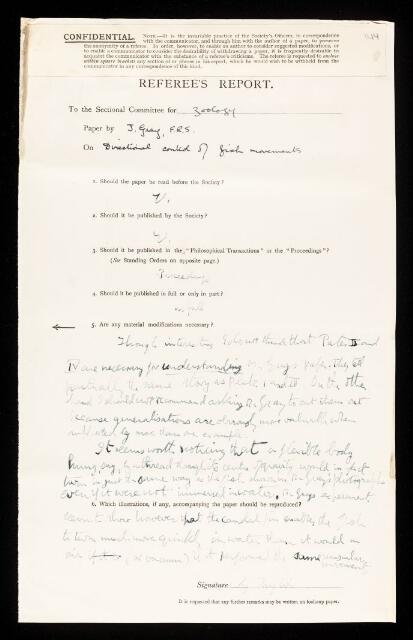 CONFIDENTIAL. NOTE.—It is the invariable practice of the Society's Officers, in correspondence
with the communicator, and through him with the author of a paper, to preserve
the anonymity of a referee. In order, however, to enable an author to consider suggested modifications, or
to enable a communicator to consider the desirability of withdrawing a paper, it is frequently desirable to
acquaint the communicator with the substance of a referee's criticisms. The referee is requested to enclose
within square brackets any section of or phrase in his report, which he would wish to be withheld from the
communicator in any correspondence of this kind.
REFEREE'S REPORT.
To the Sectional Committee for Zoology
Paper by J. Gray, F.R.S.
On Directional control of fish movements
1. Should the paper be read before the Society?
2. Should it be published by the Society?
3. Should it be published in the "Philosophical Transactions" or the "Proceedings"?
(See Standing Orders on opposite page.)
Proceedings
4. Should it be published in full or only in part?
in full
5. Are any material modifications necessary?
Though interesting I should think that Plates II and
IV are necessary for understanding Mr. Gray's paper. They tell
practically the same story as Plates I and III. On the other
hand I should not recommend asking Mr. Gray to cut them out
because generalisations are always more valuable when
illustrated by more than one example.
It seems worth noticing that a flexible body
hung, say, by a thread through its centre of gravity would in fact
turn in just the same way as the fish shown in Mr. Gray's photographs
even if it were not immersed in water. Mr. Gray's experiment
6. Which illustrations, if any, accompanying the paper should be reproduced?
seems to show however that the caudal fin enables the fish
to turn much more quickly in water than it would in
air, or vacuum, if it performed the same muscular
movement
Signature
It is requested that any further remarks may be written on foolscap paper.